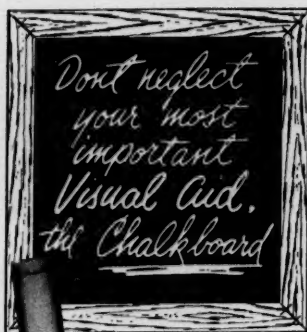 Dont neglect
your most
important
Visual Aid.
the Chalkboard